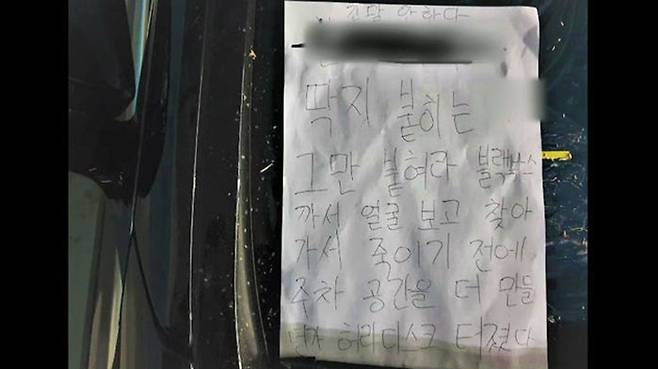 긴말 안하다
딱지 붙히는
그만 붙여라 블랙박스
까서 얼굴 보고 찾아
가서 죽이기 전에
주차 공간을 더 만들
던가 허리디스크 터졌다